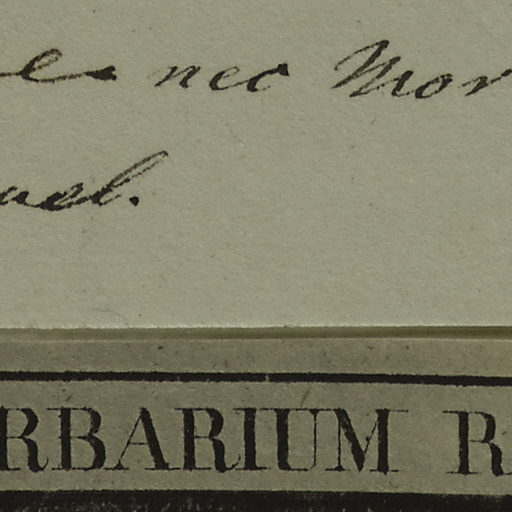 nec Mor
uel.
RBARIUM R